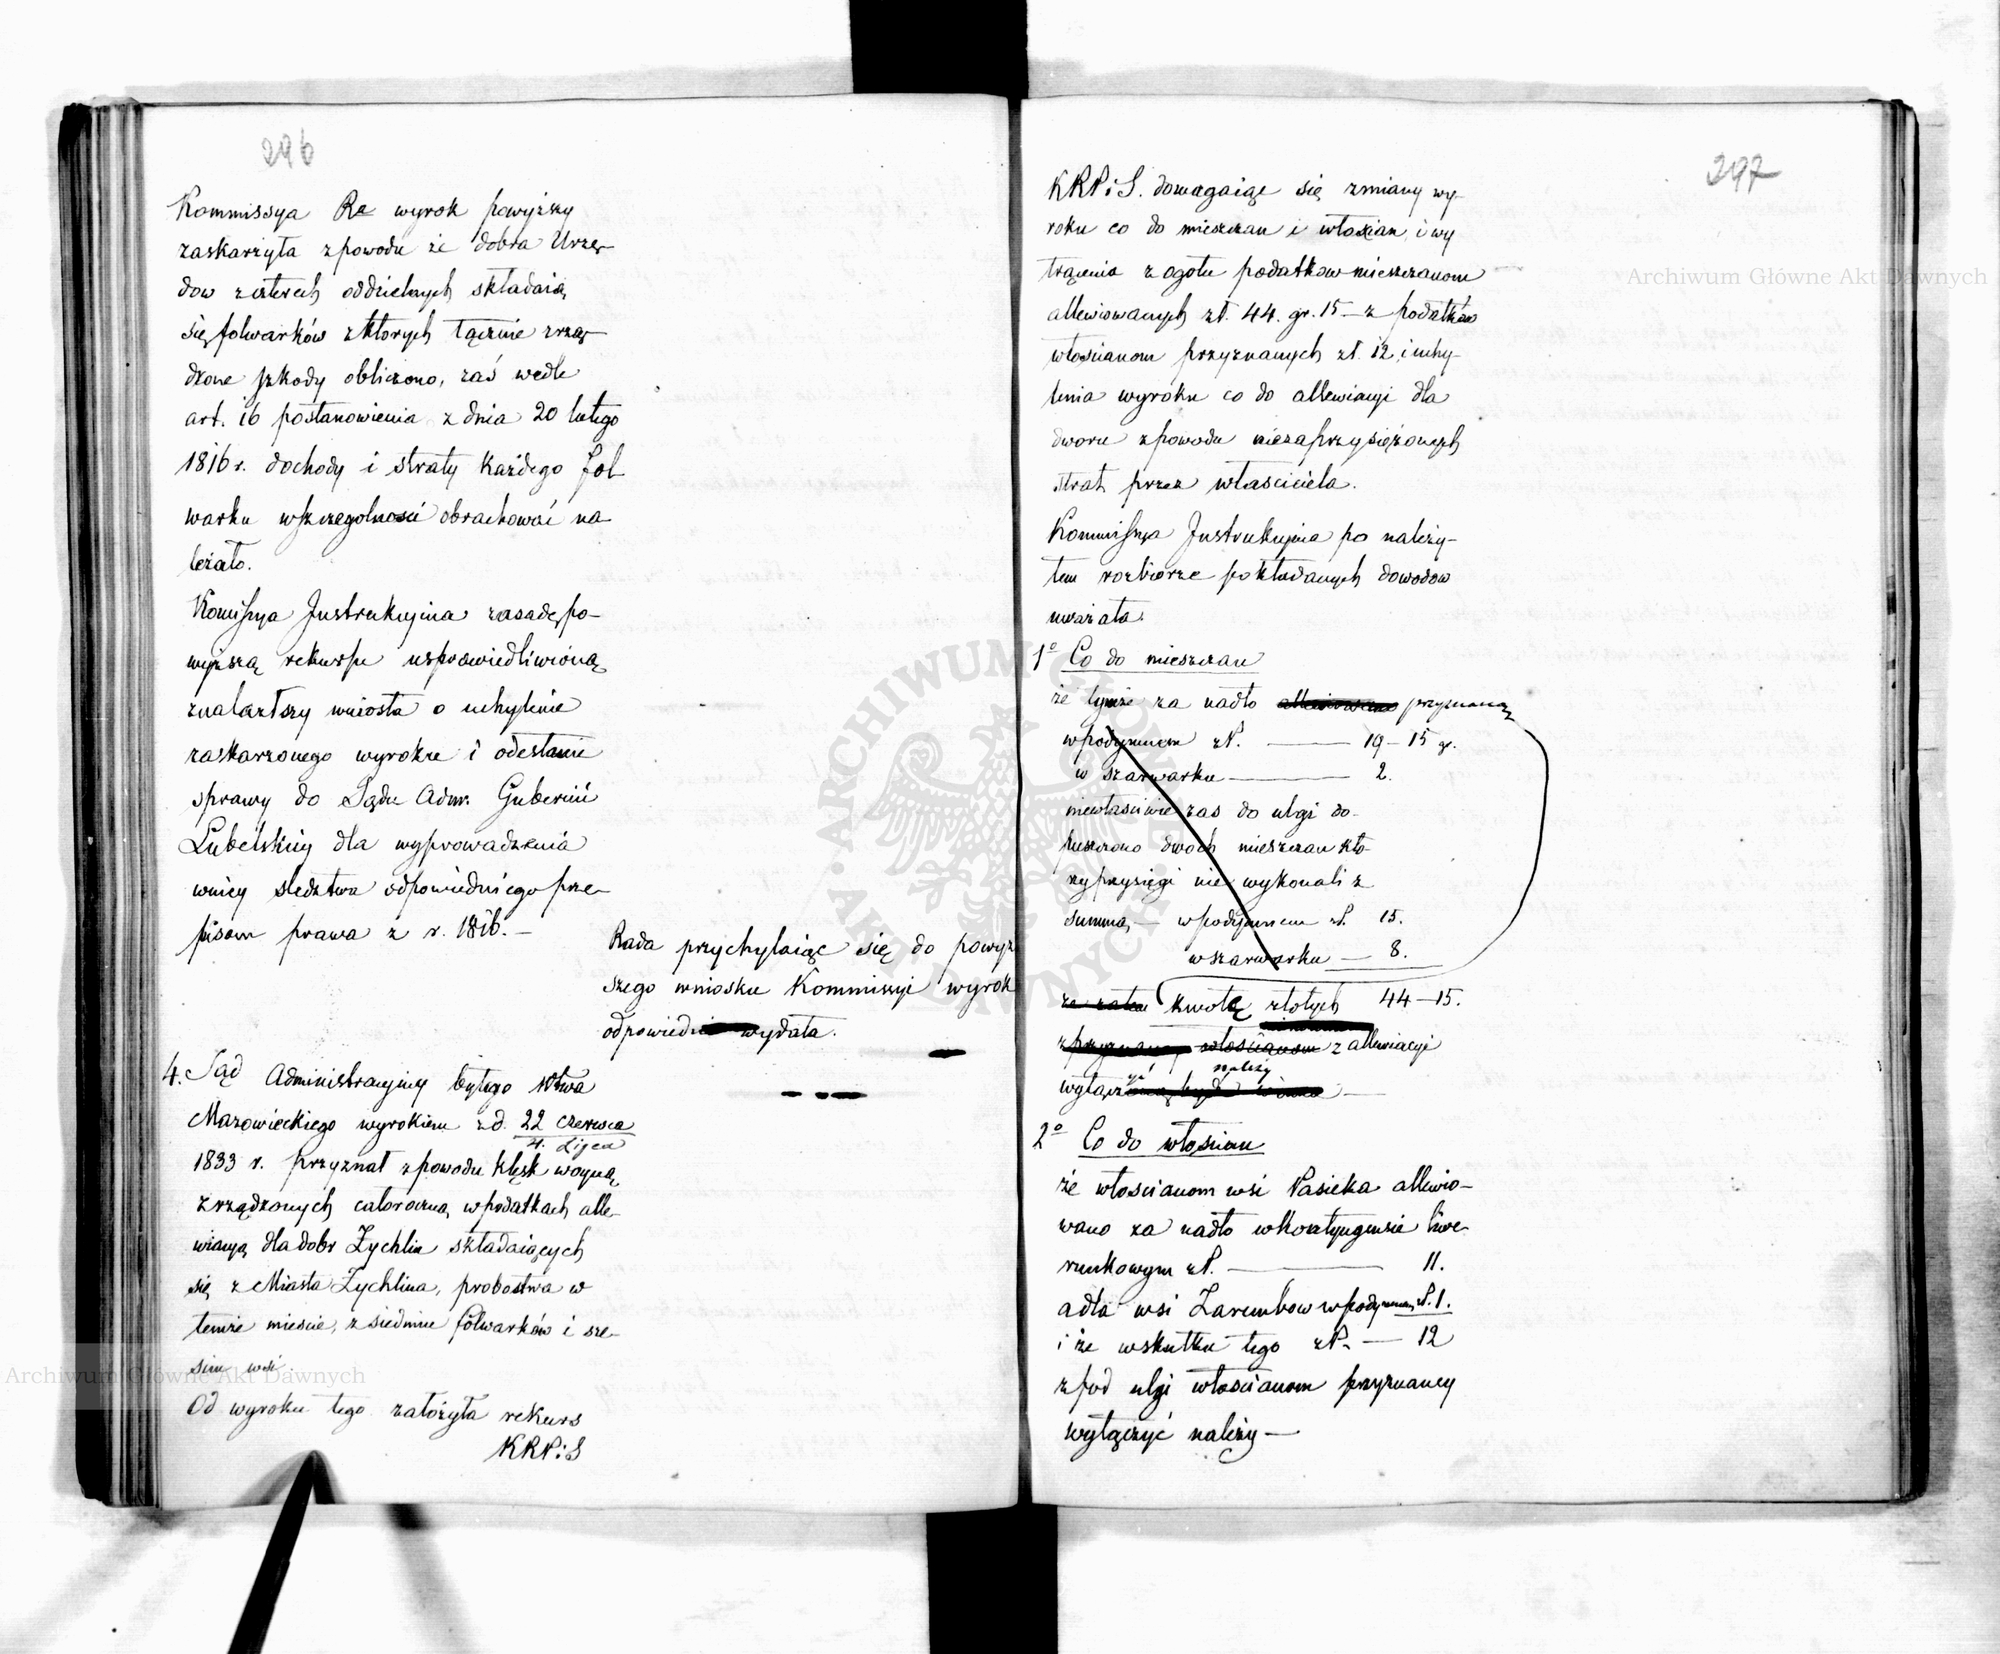 296
Kommissya Rz wyrok powyższy
zaskarżyła z powodu że dobra Urzę-
dow z czterech oddzielnych składaią
się folwarków z ktorych łącznie zrzą-
dzone szkody obliczono, zaś wedle
art. 16 postanowienia z dnia 20 lutego
1816 r. dochody i straty każdego fol
warku wszczegolnosci obrachować na-
leżało.
Komissya Instrukcyina zasadę po-
wyższą rekursu usprawiedliwioną
znalazłszy wniosła o uchylenie
zaskarzonego wyroku i odesłanie
sprawy do Sądu Adm. Gubernii
Lubelskiey dla wyprowadzenia
wniey sledztwa odpowiedniego prze-
pisom prawa z r. 1816. —
Rada przychylaiąc się do powyż
szego wniosku Kommissyi wyrok
odpowiedni wydała.
4. Sąd Administracyiny byłego Wtwa
Mazowieckiego wyrokiem z d. 22 czerwca
4. Lipca
1833 r. przyznał z powodu klęsk woyną
zrządzonych całoroczną w podatkach alle-
wiacyą dla dobr Żychlin składaiących
się z Miasta Żychlina, probostwa w
temże mieście, z siedmiu folwarków i sze-
sciu wsi
Od wyroku tego założyła rekurs
KRPiS
297
KRPiS. domagaiąc się zmiany wy-
roku co do mieszczan i włoscian i wy
trącenia z ogołu podatkow mieszczanom
allewiowanych zł. 44. gr. 15 — z podatków
włoscianom przyznanych zł. 12, i uchy-
lenia wyroku co do allewiacyi dla
dworu z powodu niezaprzysiężonych
strat przez własciciela.
Kommissya Instrukcyina po należy-
tem rozbiorze pokładanych dowodow
uważała
1º Co do mieszczan
że tymże za nadto allewiowano przyznaną
w podymnem zł. — 19 — 15 gr.
w szarwarku — 2.
niewłasciwie zas do ulgi do-
puszczono dwoch mieszczan kto-
rzy przysięgi nie wykonali z
summą — w podymnem zł. 15.
w szarwarku — 8.
że zatem kwotę złotych 44 — 15.
z przyznaney włoscianom z allewiacyi
wyłączyć należy —
2º Co do włoscian
że włoscianom wsi Pasieka allewio-
wano za nadto w kontyngensie liwe-
runkowym zł. — 11.
a dla wsi Zarembow w podymnem zł. 1.
i że wskutku tego zł. — 12
z pod ulgi włoscianom przyznaney
wyłączyć należy —
Archiwum Główne Akt Dawnych
Archiwum Główne Akt Dawnych
ARCHIWUM GŁÓWNE AKT DAWNYCH